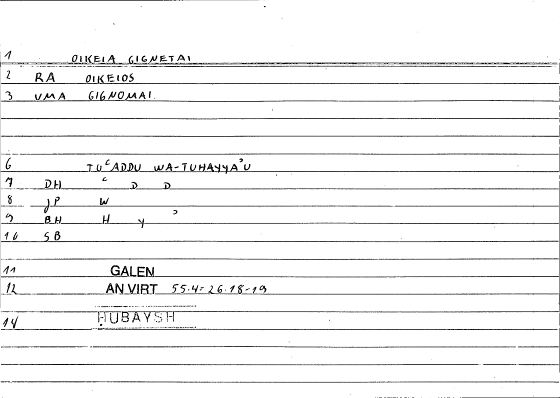 1 OIKEIA GIGNETAI
2 RA OIKEIOS
3 VMA GIGNOMAI
6 TUʿADDU WA-TUHAYYAʾU
7 DH ʿ D D
8 JP W
9 BH H Y ʾ
10 SB
11 GALEN
12 AN VIRT 55.4 = 26.18-19
14 ḤUBAYSH